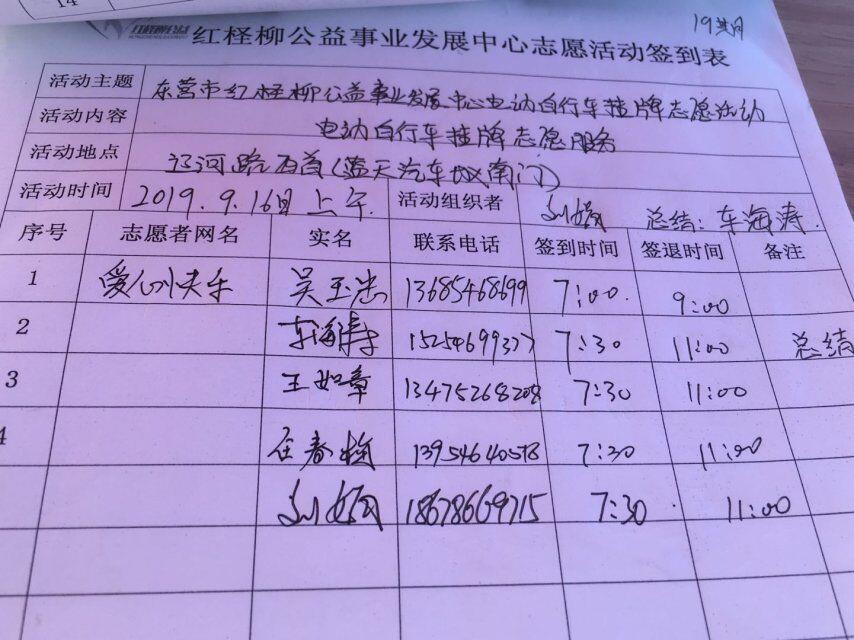 14
19共月
红柽柳公益事业发展中心志愿活动签到表
活动主题 东营市红柽柳公益事业发展中心电动自行车挂牌志愿活动
活动内容 电动自行车挂牌志愿服务
活动地点 辽河路西首(蓝天汽车城南门)
活动时间 2019.9.16日上午. 活动组织者 刘娟 总结:车海涛.
序号 志愿者网名 实名 联系电话 签到时间 签退时间 备注
1 爱心快乐 吴玉忠 13685468699 7:00. 9:00
2 车海涛 15254699377 7:30 11:00 总结
3 王如章 13475268208 7:30 11:00
4 任春梅 13954640578 7:30 11:00
刘娟 18678669715 7:30 11:00